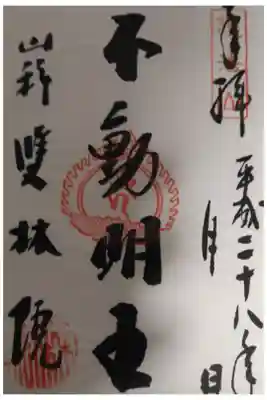 奉拝 平成二十八年 月 日
不動明王
山科 雙林院